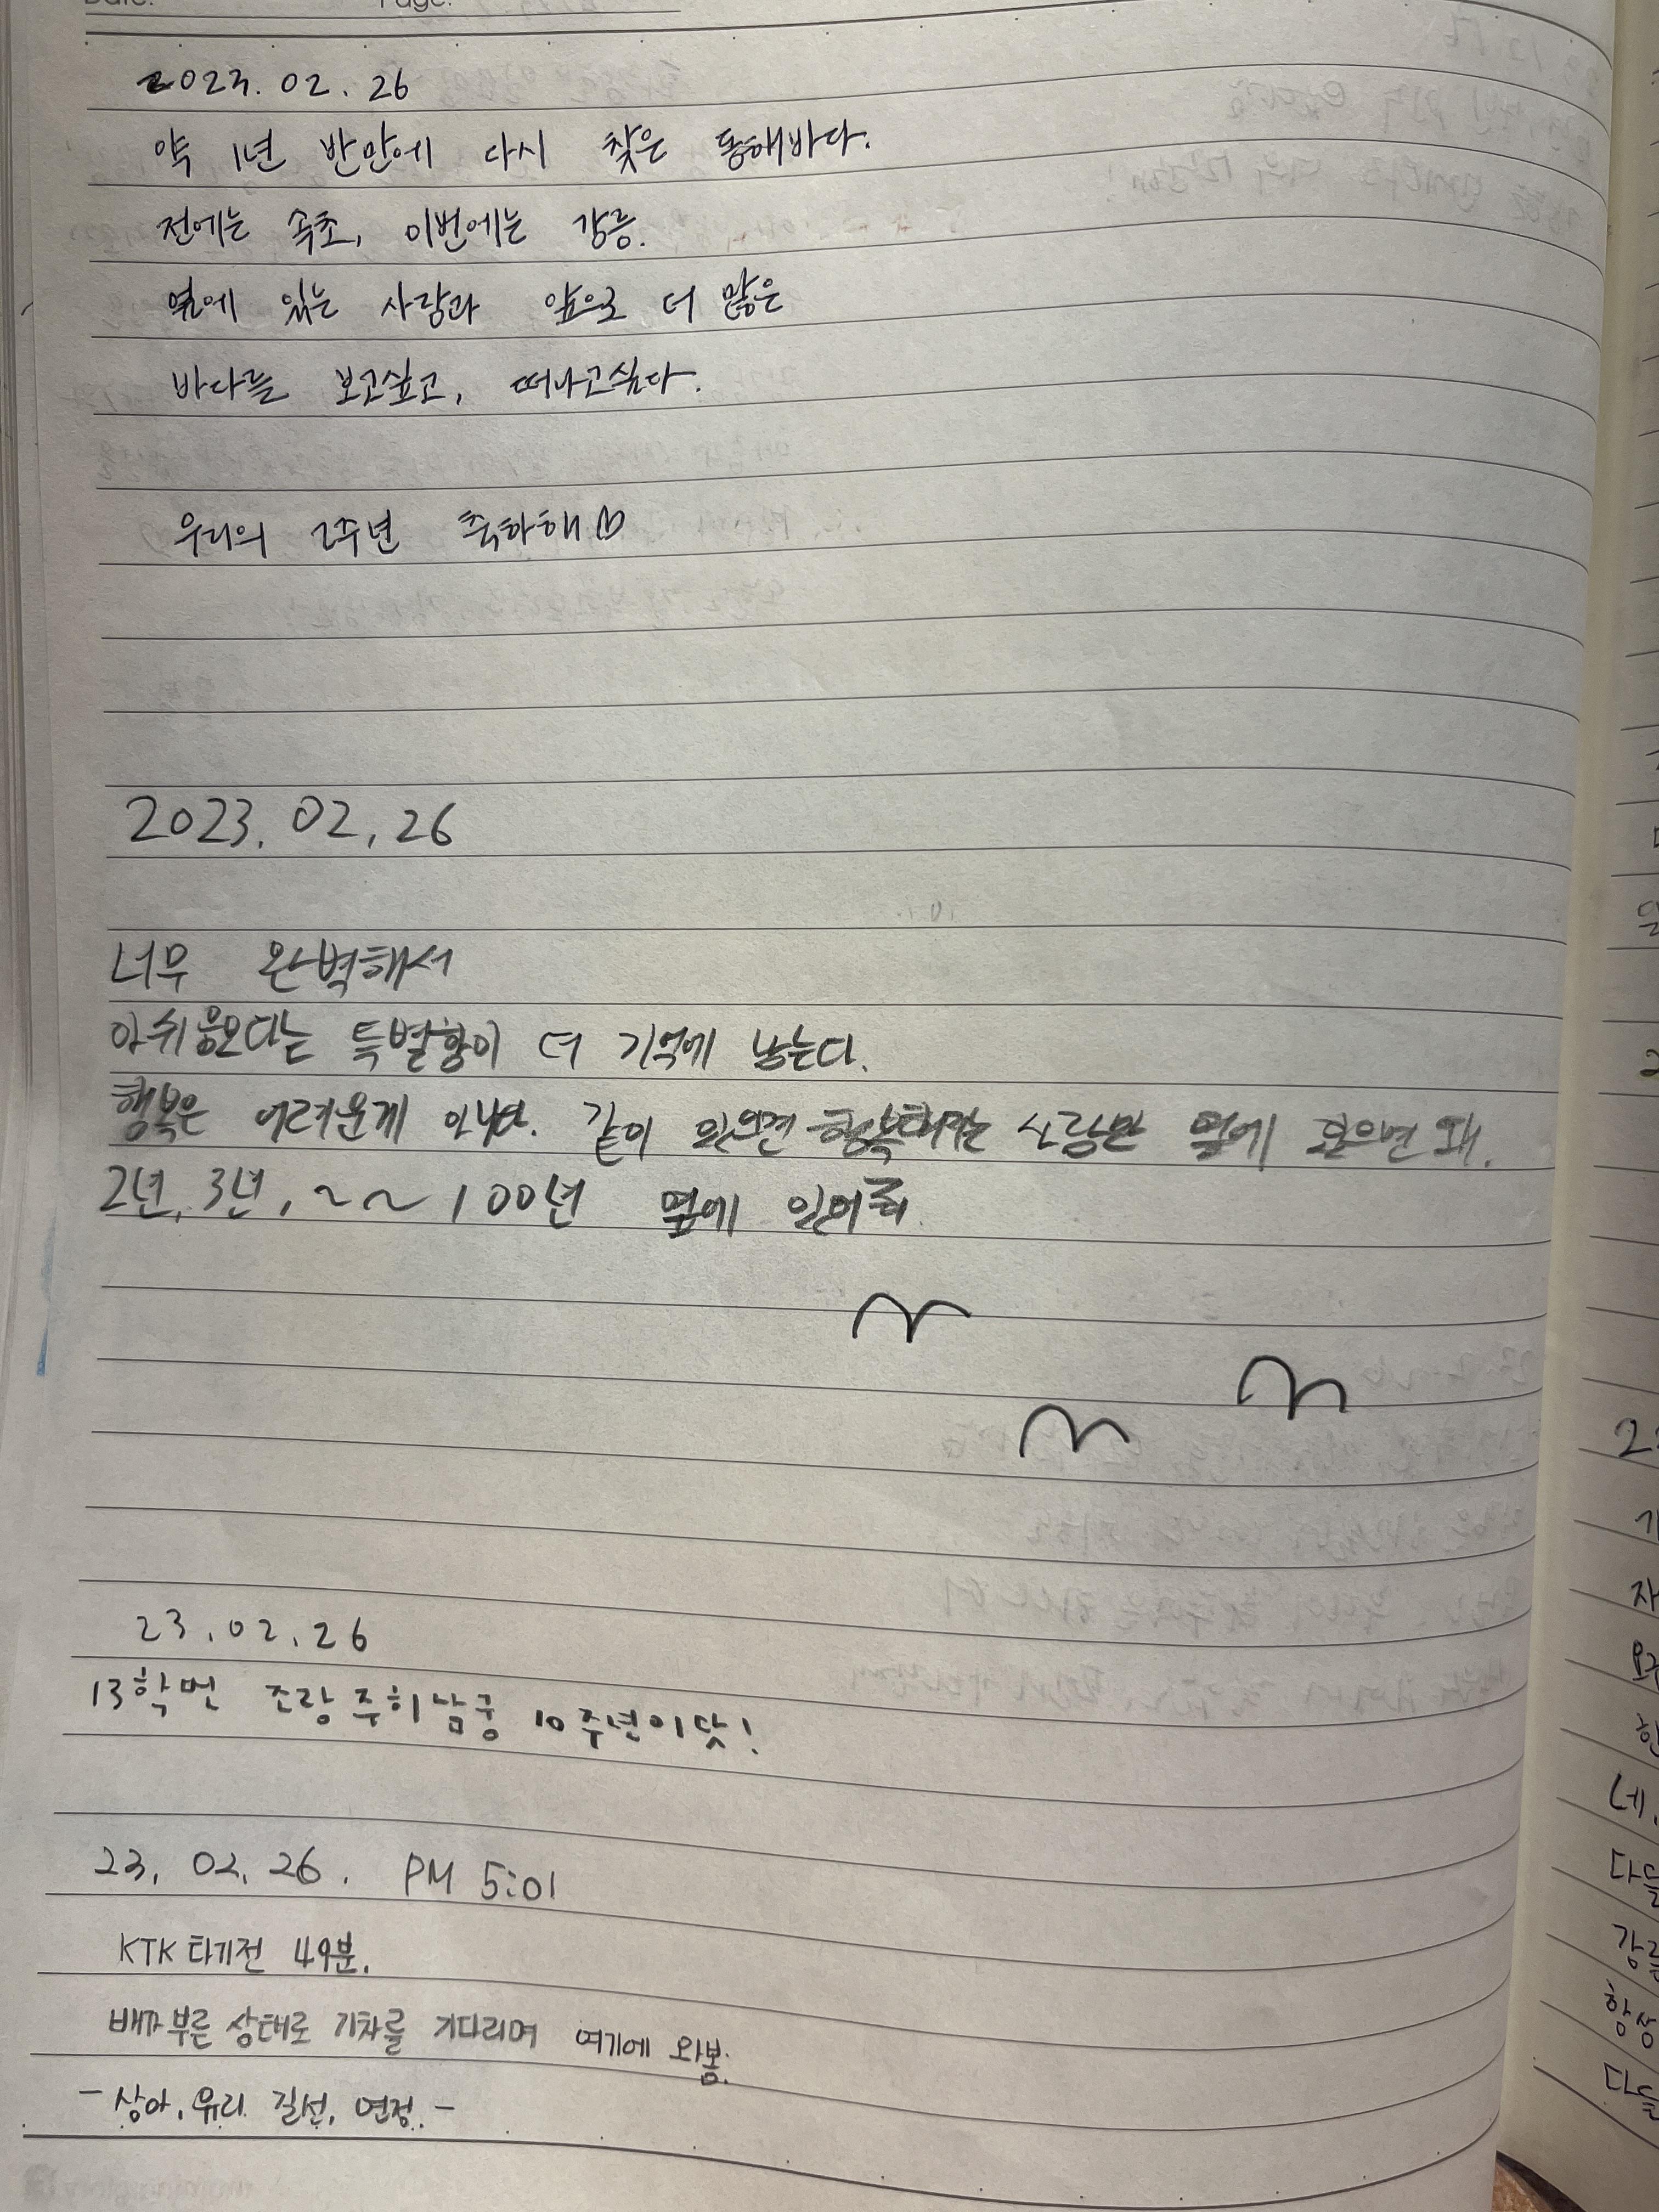 Date. Page.
2023. 02. 26
약 1년 반만에 다시 찾은 동해바다.
전에는 속초, 이번에는 강릉.
옆에 있는 사랑과 앞으로 더 많은
바다를 보고싶고, 떠나고싶다.
우리의 2주년 축하해♡
2023. 02, 26
너무 완벽해서
아쉬움보다는 특별함이 더 기억에 남는다.
행복은 어려운게 아냐. 같이 있으면 행복해지는 사람만 옆에 있으면 돼.
2년, 3년, ~~ 100년 옆에 있어줘.
23.02.26
13학번 조랑주히남궁 10주년이닷!
23. 02. 26. PM 5:01
KTK 타기전 49분.
배가 부른 상태로 기차를 기다리며 여기에 와봄.
- 상아, 유리, 길선, 연정. -